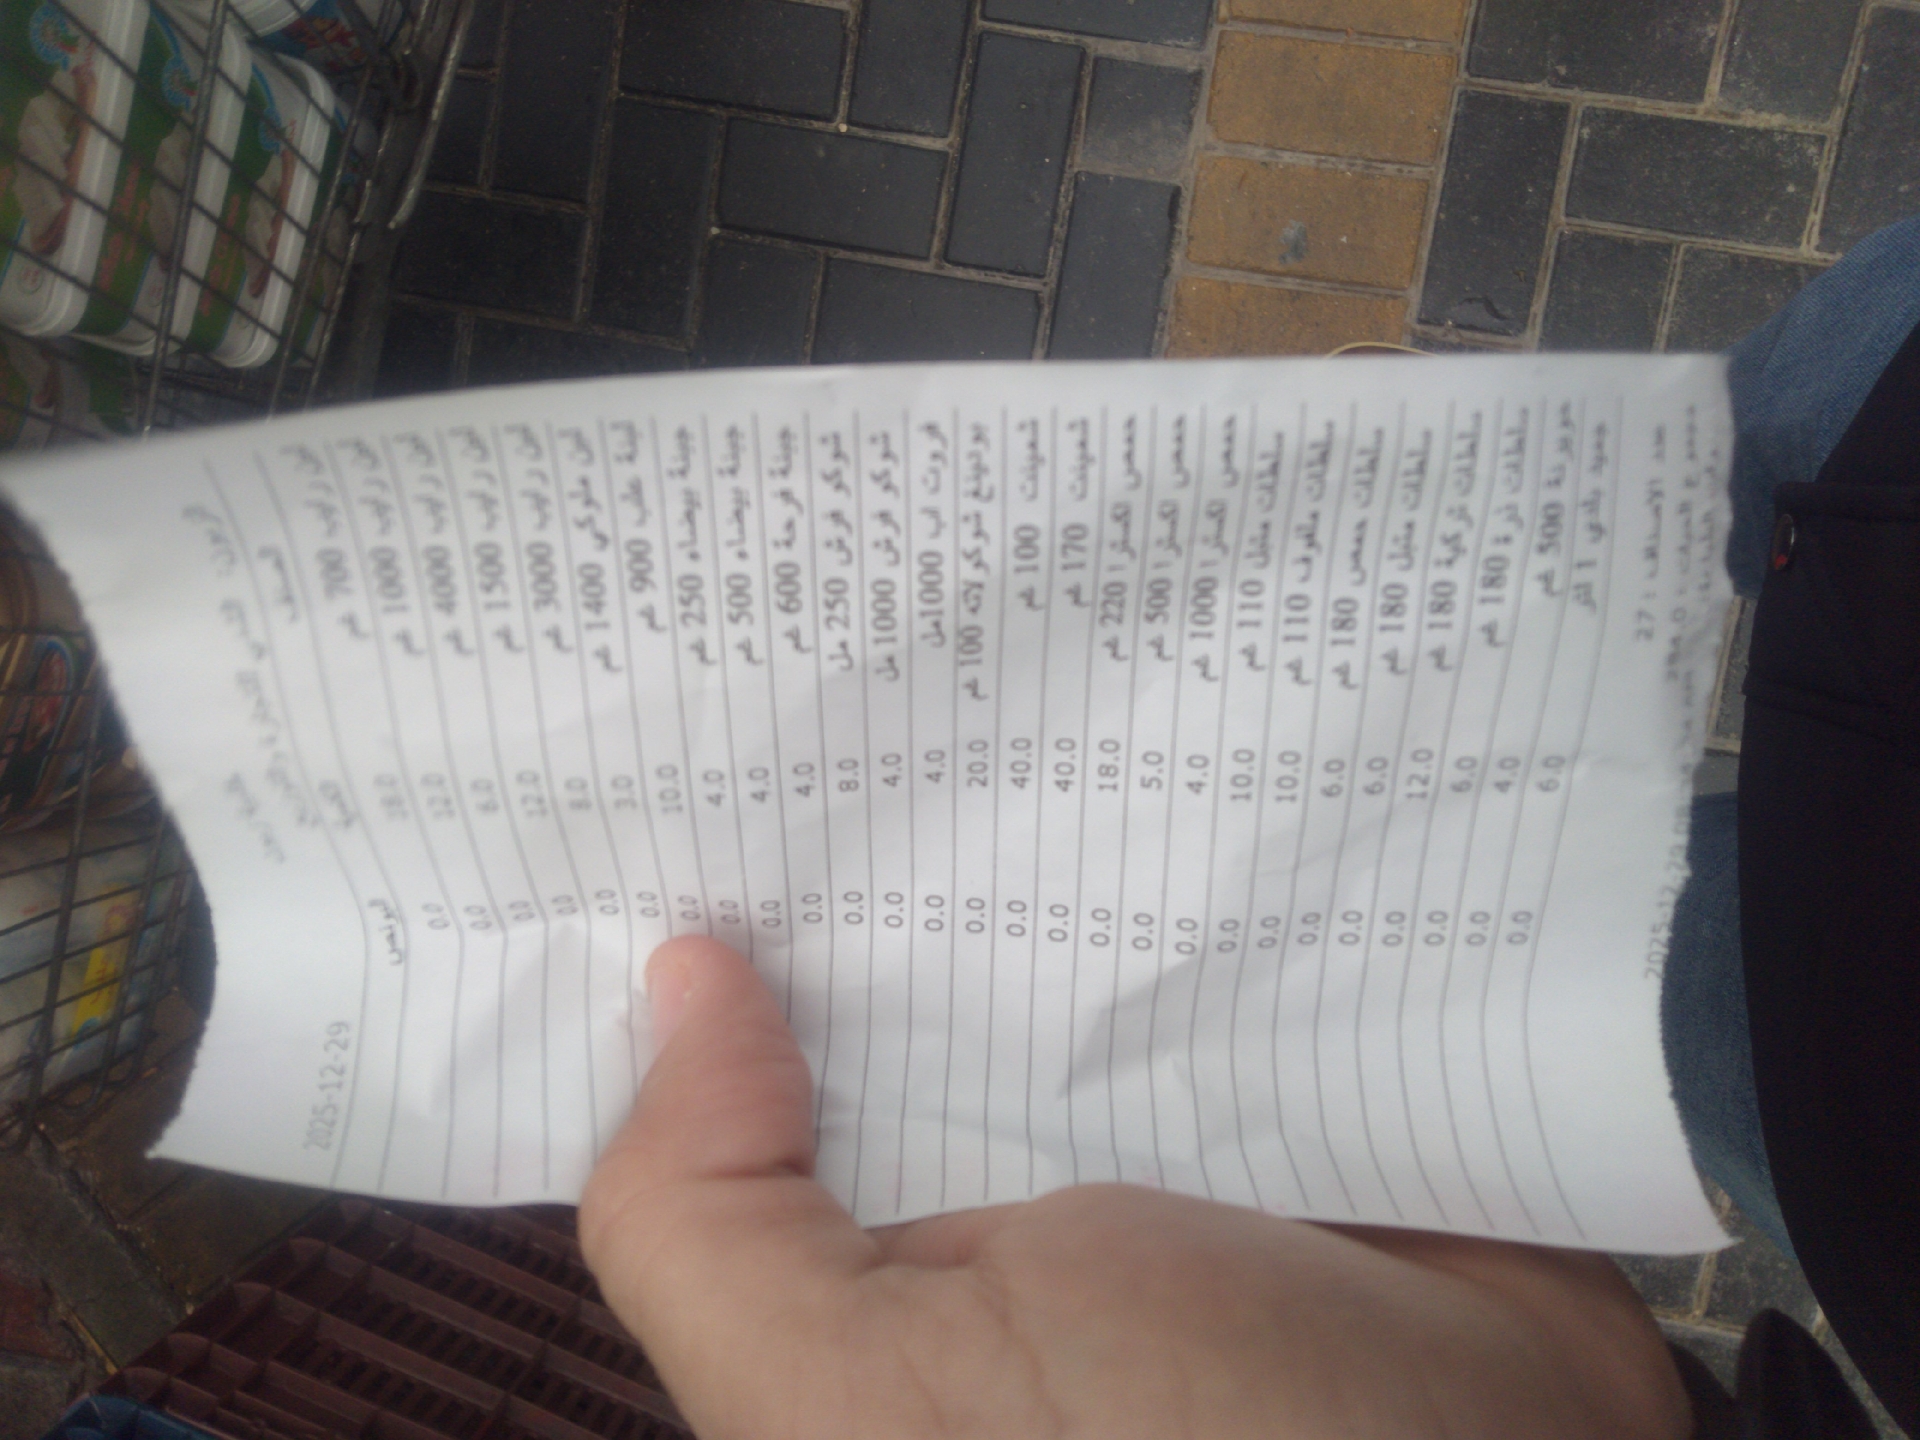 2025-12-29
الصنف الكمية البونص
لبن رايب 700 غم 18.0 0.0
لبن رايب 1000 غم 12.0 0.0
لبن رايب 4000 غم 6.0 0.0
لبن رايب 1500 غم 12.0 0.0
لبن رايب 3000 غم 8.0 0.0
لبن ملوكي 1400 غم 3.0 0.0
لبنة علب 900 غم 10.0 0.0
جبنة بيضاء 250 غم 4.0 0.0
جبنة بيضاء 500 غم 4.0 0.0
جبنة فرحة 600 غم 4.0 0.0
شوكو فرش 250 مل 8.0 0.0
شوكو فرش 1000 مل 4.0 0.0
فروت اب 1000مل 4.0 0.0
بودينغ شوكولاته 100 غم 20.0 0.0
شمينت 100 غم 40.0 0.0
شمينت 170 غم 40.0 0.0
حمص اكسترا 220 غم 18.0 0.0
حمص اكسترا 500 غم 5.0 0.0
حمص اكسترا 1000 غم 4.0 0.0
سلطات متبل 110 غم 10.0 0.0
سلطات ملفوف 110 غم 10.0 0.0
سلطات حمص 180 غم 6.0 0.0
سلطات متبل 180 غم 6.0 0.0
سلطات تركية 180 غم 12.0 0.0
سلطات ذرة 180 غم 6.0 0.0
500 غم 4.0 0.0
جميد بلدي 1 لتر 6.0 0.0
عدد الاصناف : 27
284.0